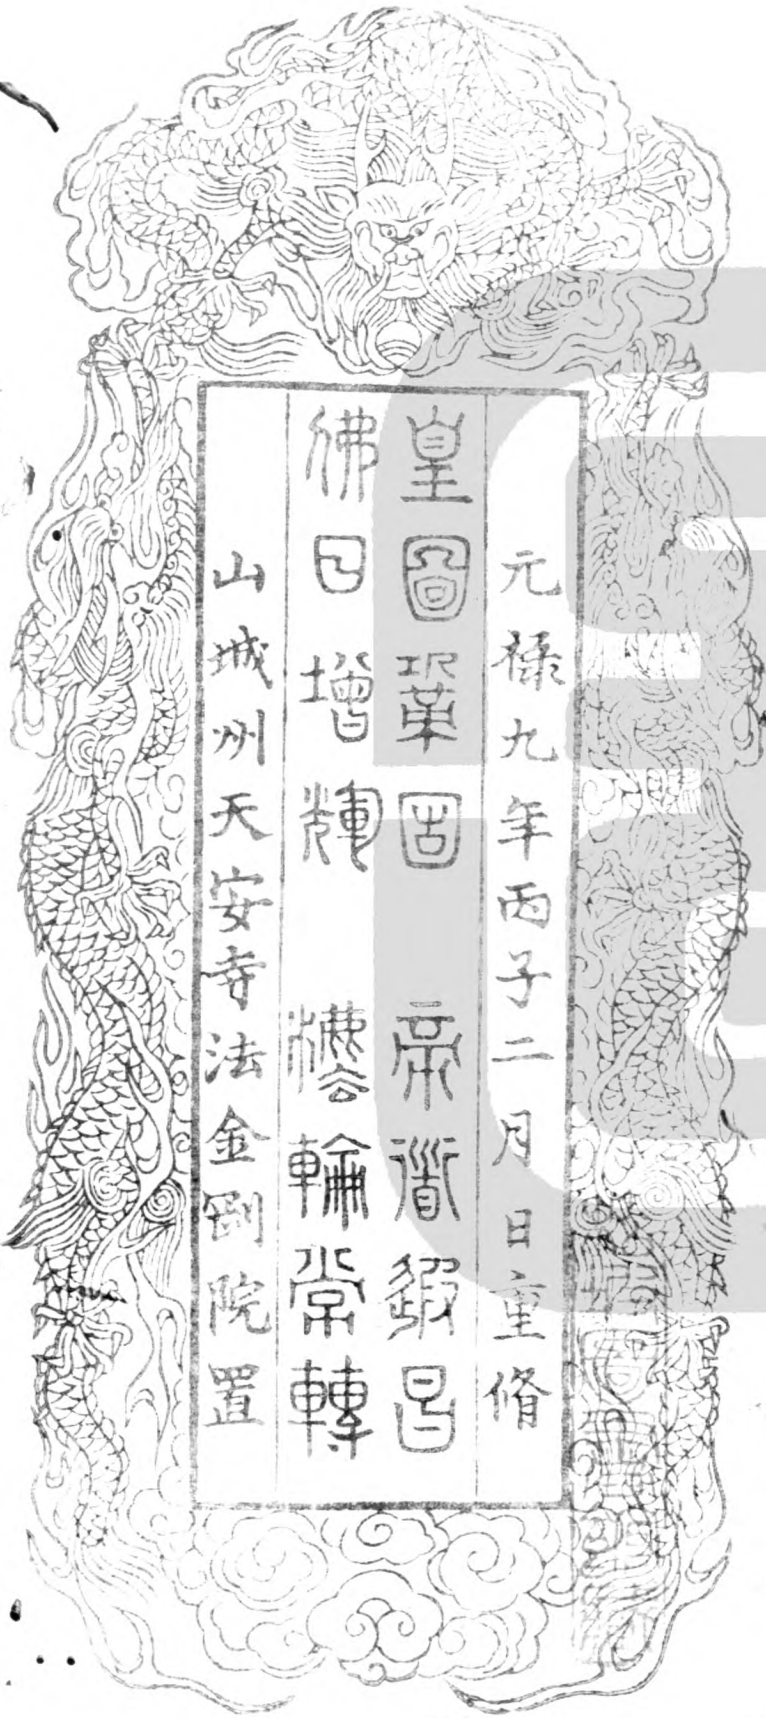 元祿九年丙子二月　日重脩
皇圖鞏固　帝道遐昌
佛日增輝　法輪常轉
山城州天安寺法金剛院置